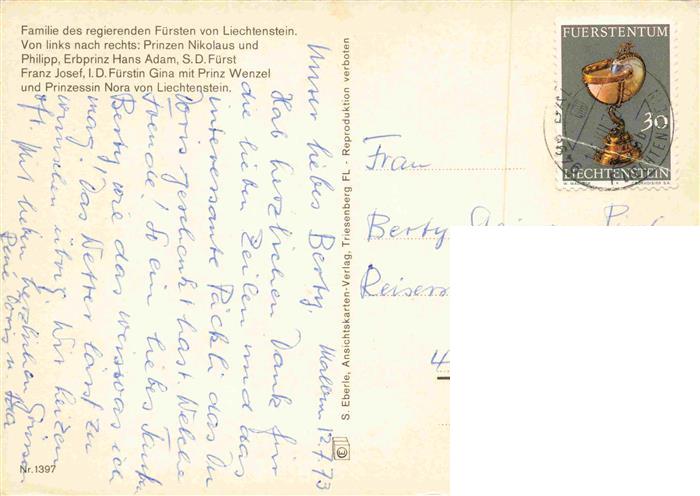 Familie des regierenden Fürsten von Liechtenstein.
Von links nach rechts: Prinzen Nikolaus und
Philipp, Erbprinz Hans Adam, S.D. Fürst
Franz Josef, I.D. Fürstin Gina mit Prinz Wenzel
und Prinzessin Nora von Liechtenstein.
Malbun 12.7.73
Unser liebes Berty,
Hab herzlichen Dank für
die lieben Zeilen und das
interessante Päckli das Du
Doris geschenkt hast. Welche
Freude! So ein liebes Tanti
Berty, wie das weiss was ich
mag. Das Wetter lässt zu
wünschen übrig. Wir heizen
oft. Mit lieben herzlichen Grüssen
René Doris u.
Nr. 1397
S. Eberle, Ansichtskarten-Verlag, Triesenberg FL - Reproduktion verboten
FÜRSTENTUM
30
LIECHTENSTEIN
Frau
Berty
4